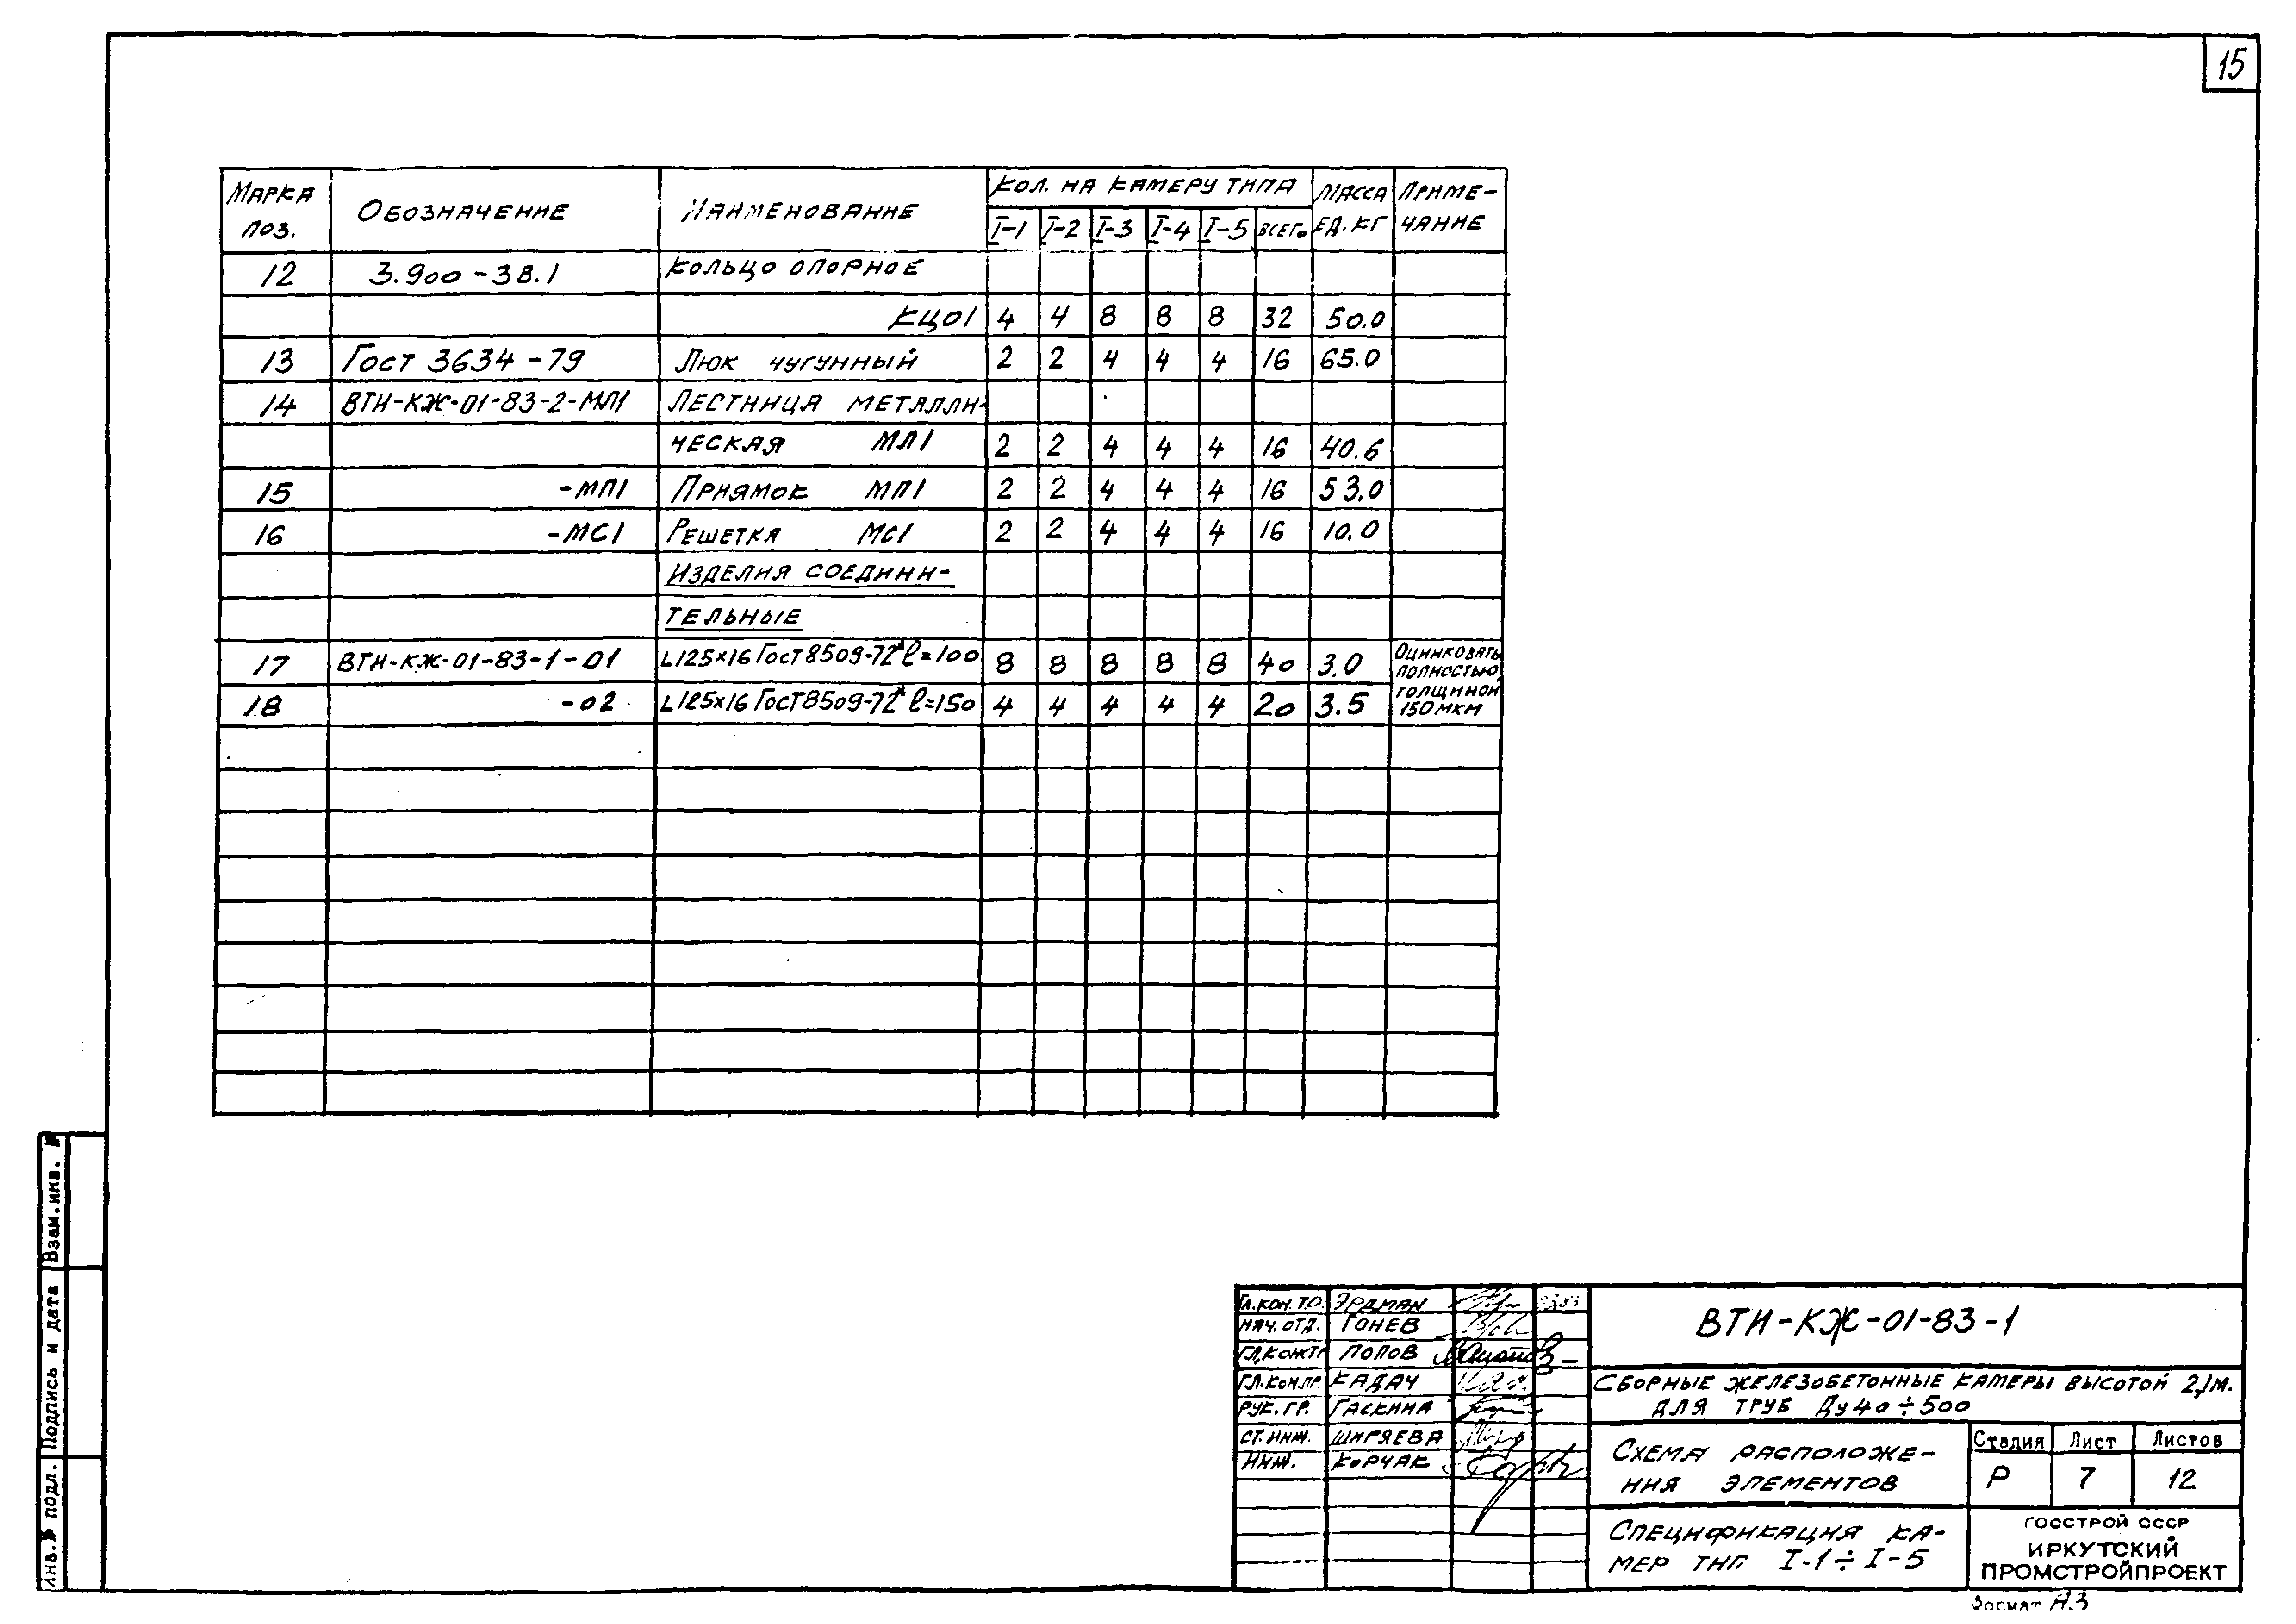 15
МАРКА ПОЗ. ОБОЗНАЧЕНИЕ НАИМЕНОВАНИЕ КОЛ. НА КАМЕРУ ТИПА МАССА ЕД. КГ ПРИМЕ-ЧАНИЕ
I-1 I-2 I-3 I-4 I-5 ВСЕГО
12 3.900-3В.1 КОЛЬЦО ОПОРНОЕ
КЦО1 4 4 8 8 8 32 50.0
13 ГОСТ 3634-79 ЛЮК ЧУГУННЫЙ 2 2 4 4 4 16 65.0
14 ВТИ-КЖ-01-83-2-МЛ1 ЛЕСТНИЦА МЕТАЛЛИ-
ЧЕСКАЯ МЛ1 2 2 4 4 4 16 40.6
15 -МП1 ПРИЯМОК МП1 2 2 4 4 4 16 53.0
16 -МС1 РЕШЕТКА МС1 2 2 4 4 4 16 10.0
ИЗДЕЛИЯ СОЕДИНИ-
ТЕЛЬНЫЕ
17 ВТИ-КЖ-01-83-1-01 L125×16 ГОСТ 8509-72* ℓ=100 8 8 8 8 8 40 3.0 ОЦИНКОВАТЬ
ПОЛНОСТЬЮ,
18 -02 L125×16 ГОСТ 8509-72* ℓ=150 4 4 4 4 4 20 3.5 ТОЛЩИНОЙ
150 МКМ
Взам.инв. №
Подпись и дата
Инв.№ подл.
ГЛ. КОН. Т.О. ЭРДМАН
НАЧ. ОТД. ГОНЕВ
ГЛ. КОНСТР ПОПОВ
ГЛ. КОН. ПР. КАДАЧ
РУК. ГР. ГАСКИНА
СТ. ИНЖ. ШИГЯЕВА
ИНЖ. КОРЧАК
ВТИ-КЖ-01-83-1
СБОРНЫЕ ЖЕЛЕЗОБЕТОННЫЕ КАМЕРЫ ВЫСОТОЙ 2,1М.
ДЛЯ ТРУБ Ду 40÷500
СХЕМА РАСПОЛОЖЕ-
НИЯ ЭЛЕМЕНТОВ
Стадия Лист Листов
Р 7 12
СПЕЦИФИКАЦИЯ КА-
МЕР ТИП I-1÷I-5
ГОССТРОЙ СССР
ИРКУТСКИЙ
ПРОМСТРОЙПРОЕКТ
Формат А3